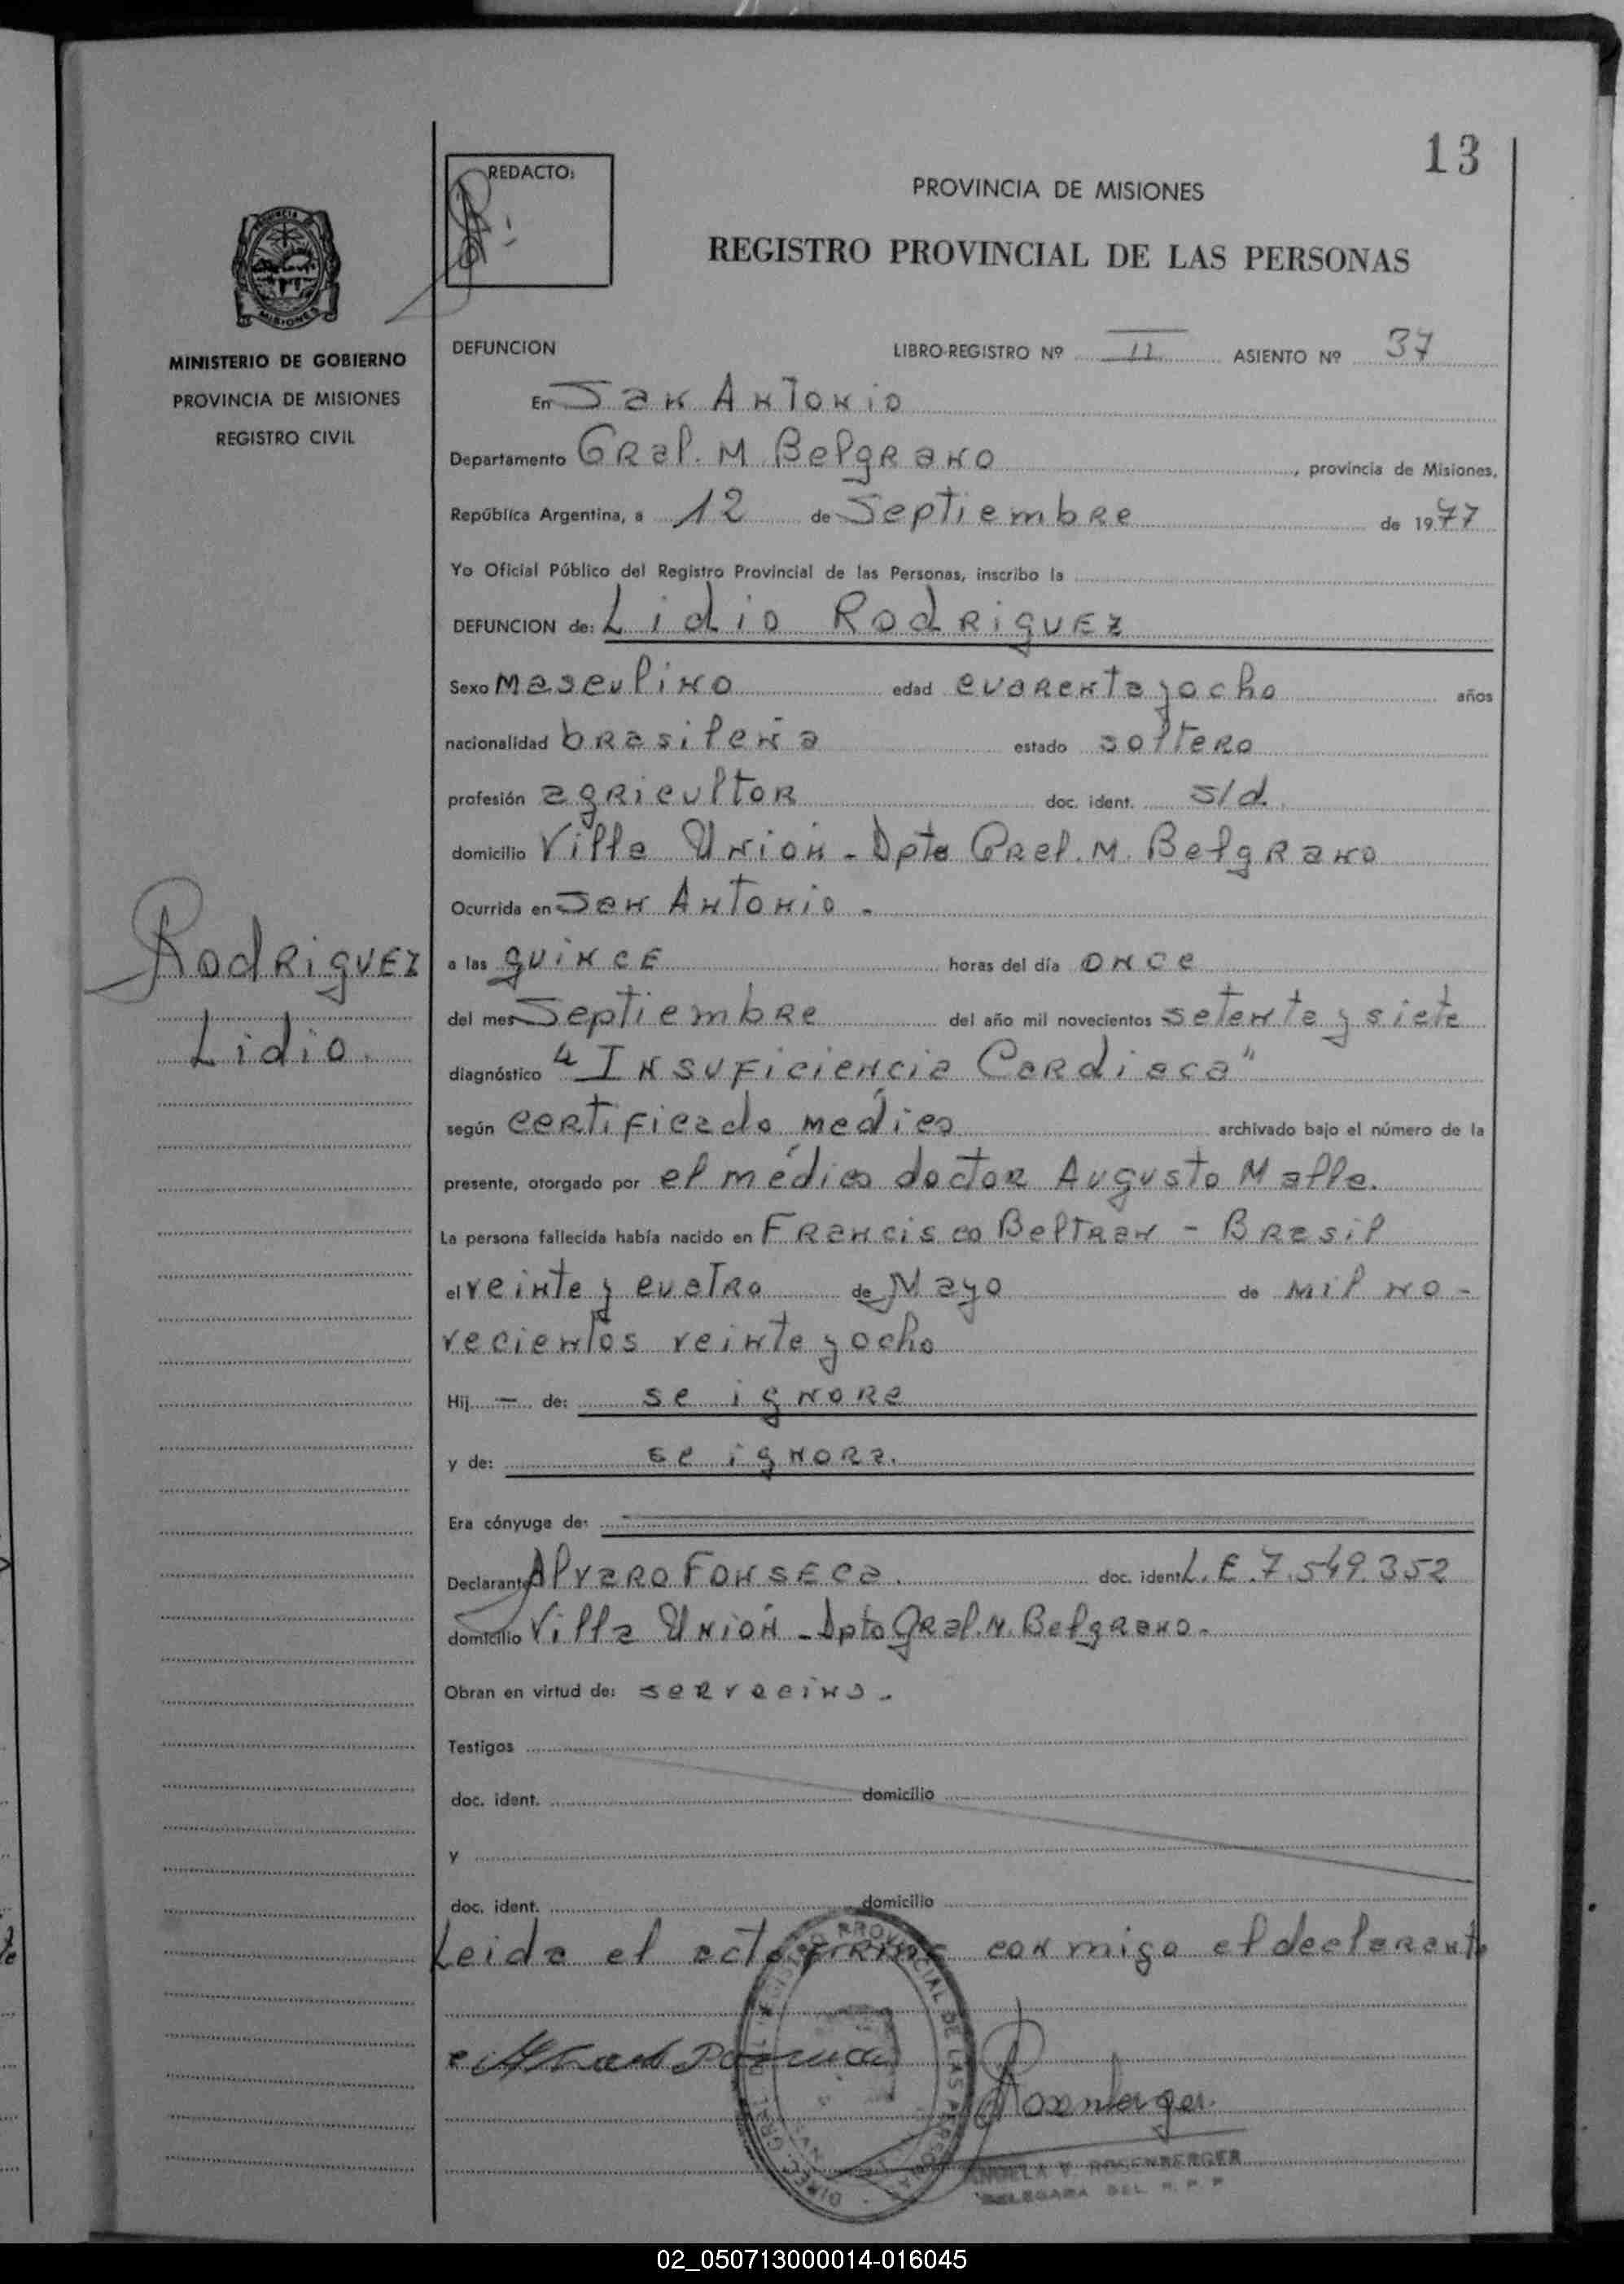 13
REDACTO:
PROVINCIA DE MISIONES
REGISTRO PROVINCIAL DE LAS PERSONAS
MISIONES
MINISTERIO DE GOBIERNO
PROVINCIA DE MISIONES
REGISTRO CIVIL
DEFUNCION LIBRO-REGISTRO Nº II ASIENTO Nº 37
En San Antonio
Departamento Gral. M. Belgrano, provincia de Misiones,
República Argentina, a 12 de Septiembre de 1977
Yo Oficial Público del Registro Provincial de las Personas, inscribo la
DEFUNCION de: Lidio Rodriguez
Sexo masculino edad cuarenta y ocho años
nacionalidad brasileña estado soltero
profesión agricultor doc. ident. s/d.
domicilio Villa Unión - Dpto Gral. M. Belgrano
Ocurrida en San Antonio.-
a las quince horas del día once
del mes Septiembre del año mil novecientos setenta y siete
diagnóstico "Insuficiencia Cardiaca"
según certificado médico archivado bajo el número de la
presente, otorgado por el médico doctor Augusto Malle.
La persona fallecida había nacido en Francisco Beltran - Brasil
el veinte y cuatro de Mayo de mil no-
vecientos veinte y ocho
Hij - de: se ignora
y de: se ignora.
Era cónyuge de:
Declarante Alvaro Fonseca. doc. ident. L.E. 7.549.352
domicilio Villa Unión - Dpto Gral. M. Belgrano.-
Obran en virtud de: ser vecino.-
Testigos
doc. ident. domicilio
y
doc. ident. domicilio
Leida el acta firma conmigo el declarante
Rodriguez
Lidio.
REGISTRO PROVINCIAL DE LAS PERSONAS
Rosenberger
ANGELA V. ROSENBERGER
DELEGADA DEL R. P. P.
02_050713000014-016045